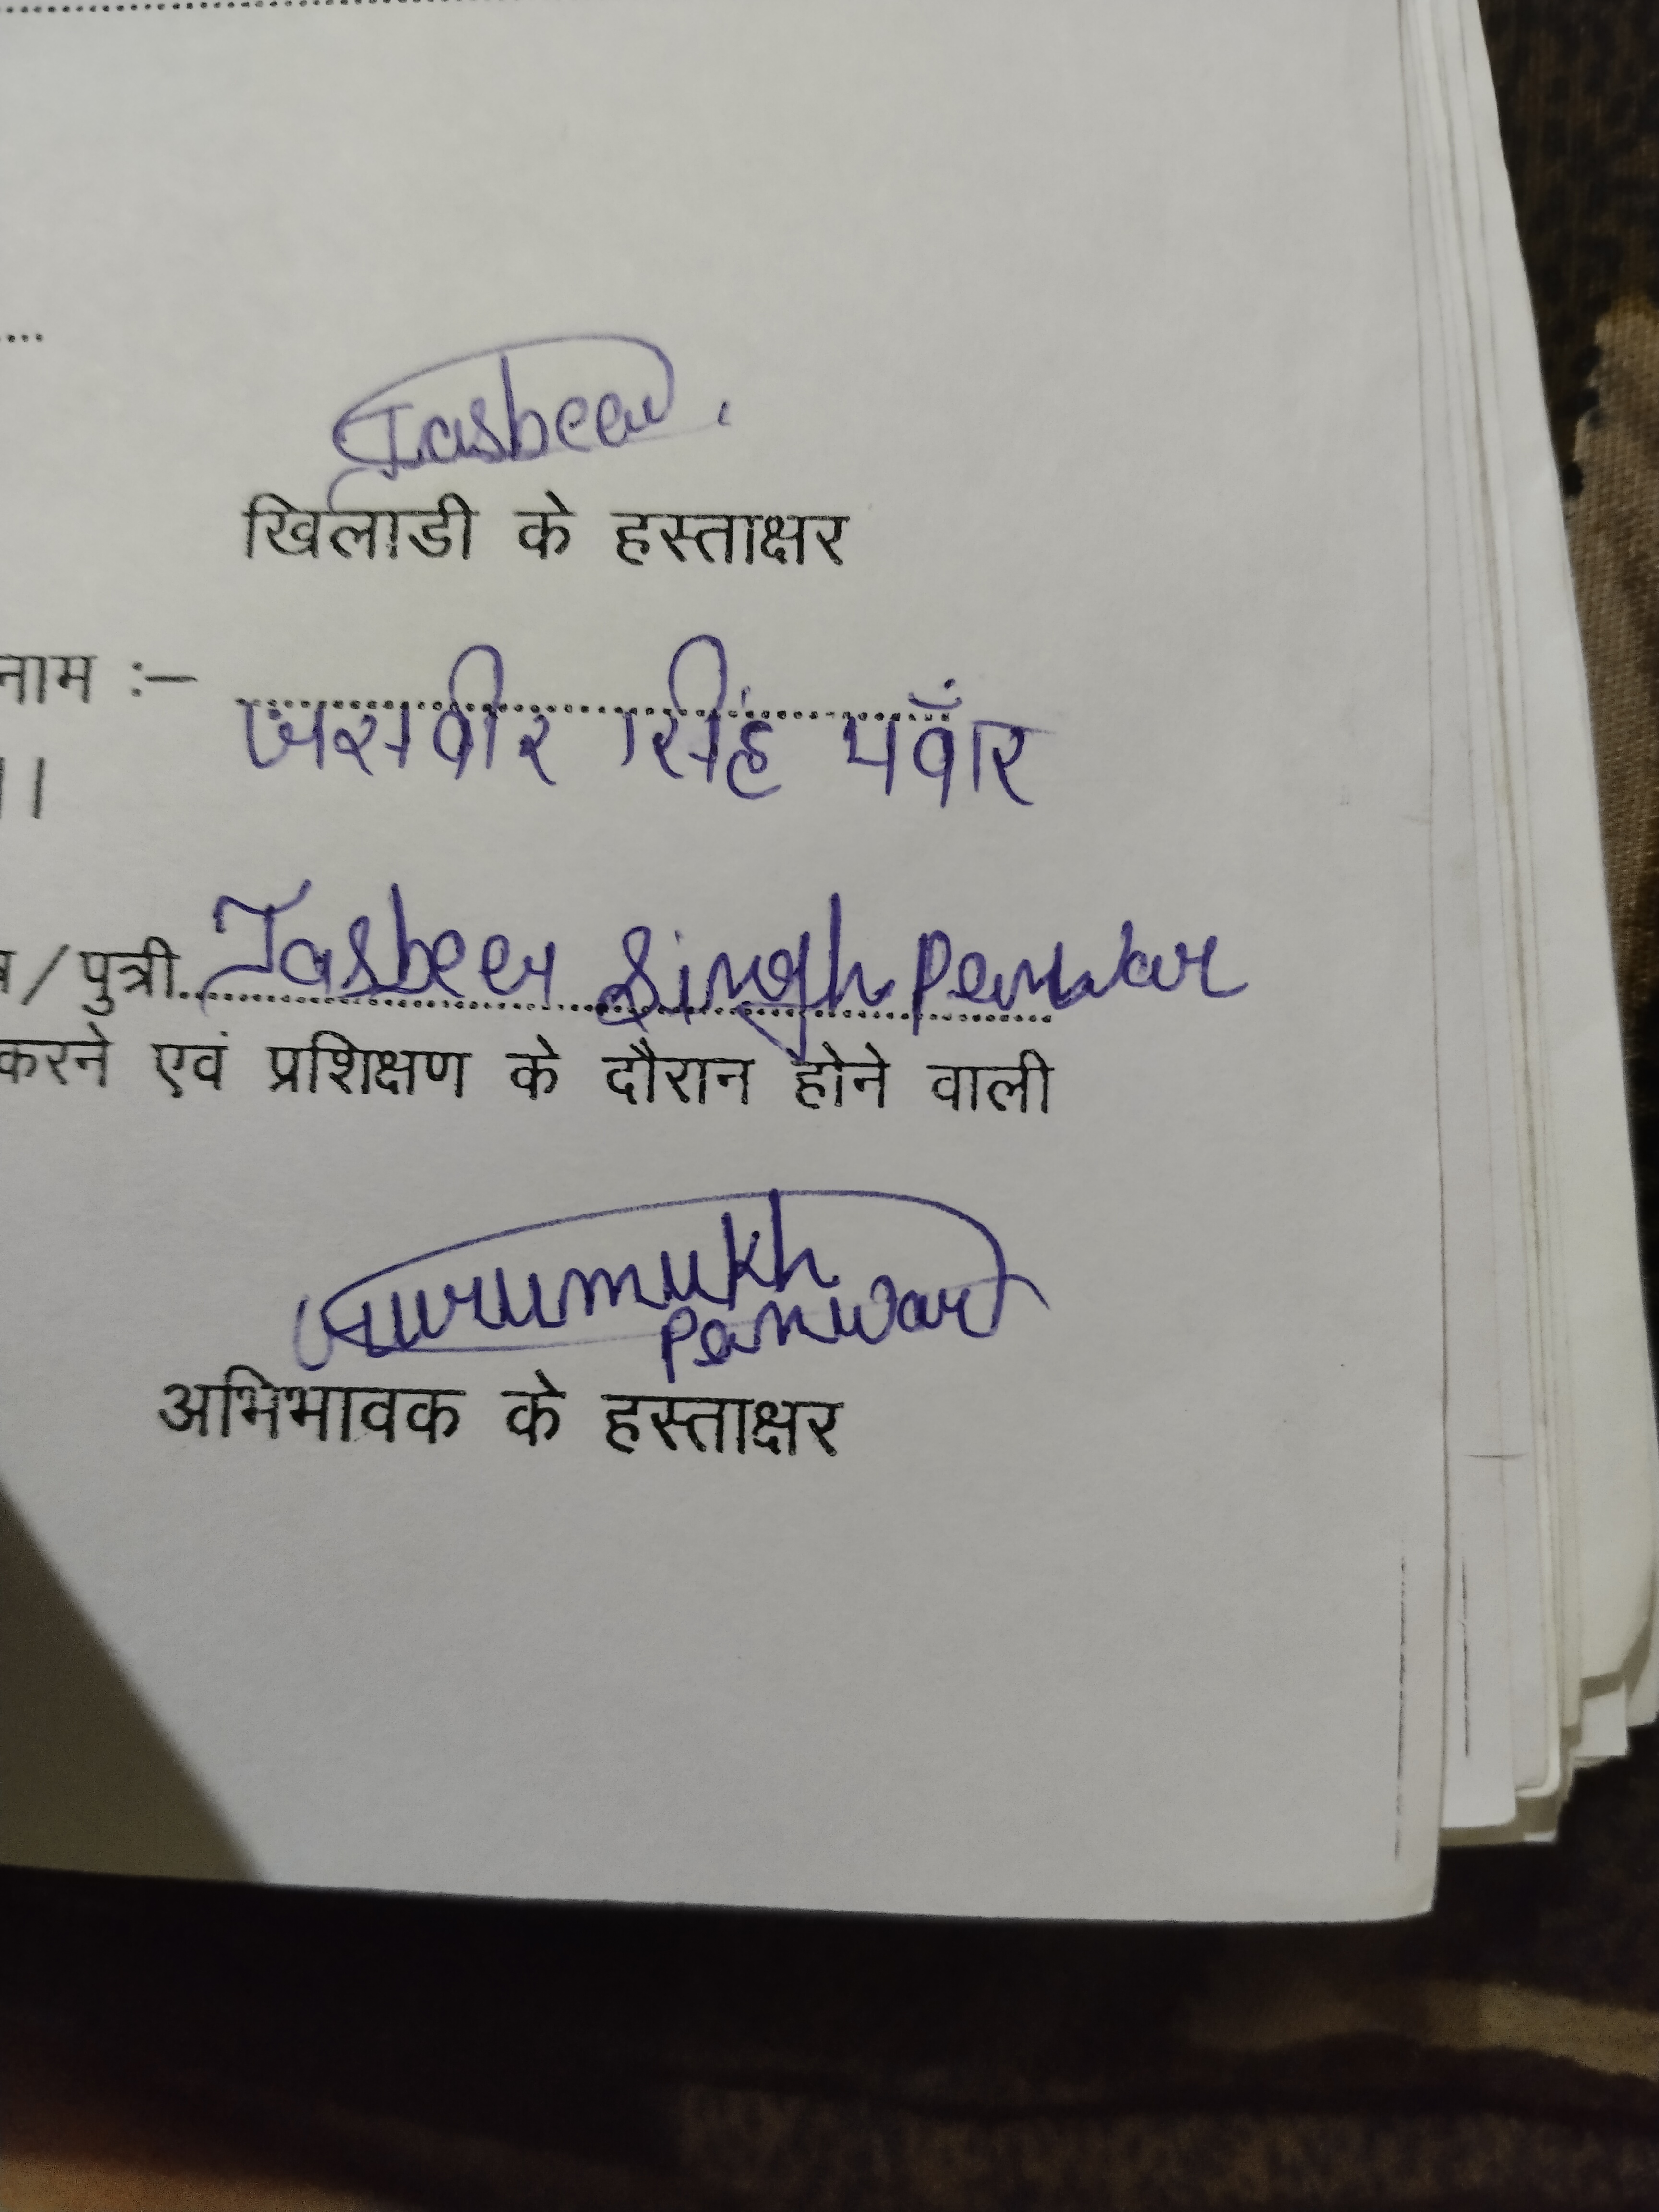 Jasbeer
खिलाडी के हस्ताक्षर
नाम :– जसवीर सिंह पँवार
।।
/ पुत्री Jasbeer Singh Panwar
करने एवं प्रशिक्षण के दौरान होने वाली
Gurumukh
Panwar
अभिभावक के हस्ताक्षर